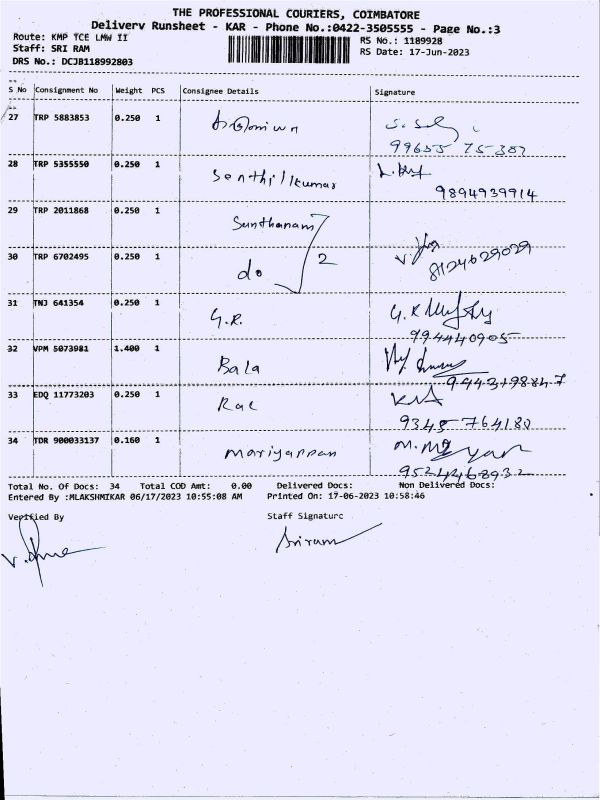 THE PROFESSIONAL COURIERS, COIMBATORE
Delivery Runsheet - KAR - Phone No.:0422-3505555 - Page No.:3
Route: KMP TCE LMW II
RS No.: 1189928
Staff: SRI RAM
RS Date: 17-Jun-2023
DRS No.: DCJB118992803
S No Consignment No Weight PCS Consignee Details Signature
27 TRP 5883853 0.250 1
99655 75 387
28 TRP 5355550 0.250 1 Senthilkumar
9894939914
29 TRP 2011868 0.250 1 Santhanam
30 TRP 6702495 0.250 1 do 2
8124629029
31 TNJ 641354 0.250 1 G.R.
994440905
32 VPM 5073981 1.400 1 Bala
33 EDQ 11773203 0.250 1
9345 764180
34 TDR 900033137 0.160 1 Mariyappan
9524468932
Total No. Of Docs: 34 Total COD Amt: 0.00 Delivered Docs: Non Delivered Docs:
Entered By :MLAKSHMIKAR 06/17/2023 10:55:08 AM Printed On: 17-06-2023 10:58:46
Verified By Staff Signature
Sriram